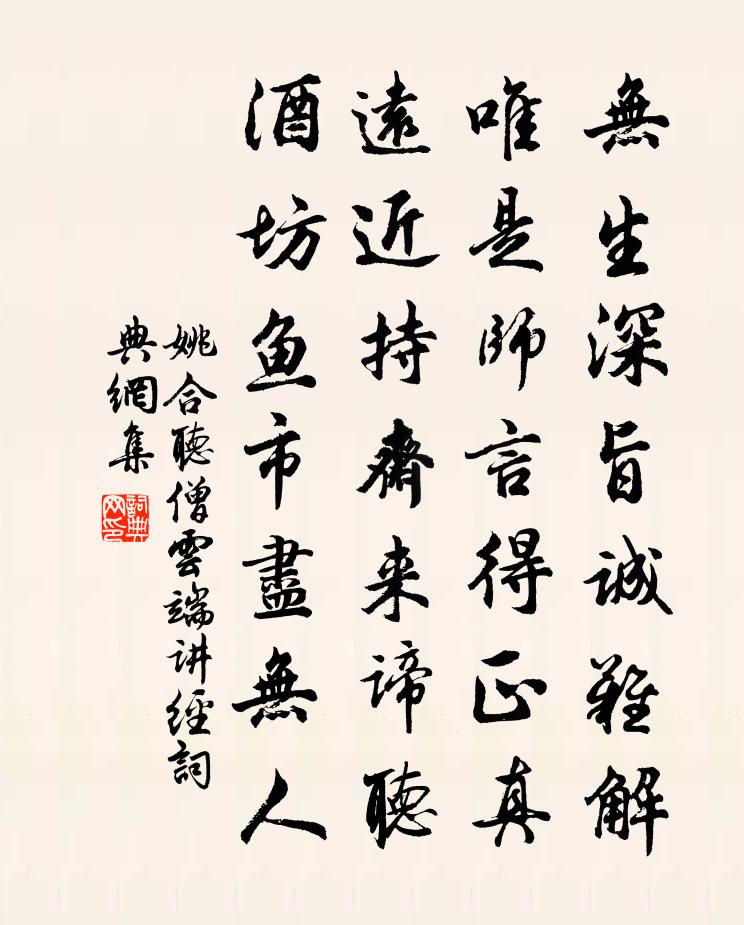 無生深旨誠難解
唯是師言得正真
遠近持齋来諦聽
酒坊魚市盡無人
姚合聽僧雲端讲經詞
典網集
詞典
网印